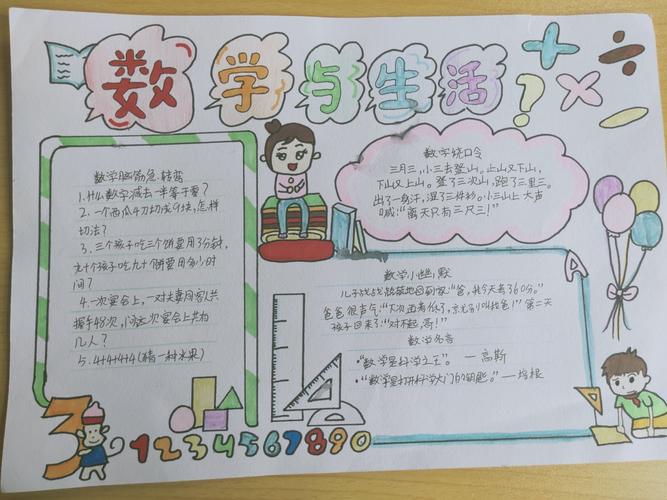 数学与生活
数学脑筋急转弯
1.什么数字减去一半等于零？
2.一个西瓜4刀切成9块，怎样
切法？
3.三个孩子吃三个饼要用3分钟，
九十个孩子吃九十个饼要用多少时
间？
4.一次宴会上，一对夫妻同客人共
握手48次，问这次宴会上共有
几人？
5.4+4+4+4(猜一种水果)
数字绕口令
三月三，小三去登山。上山又下山，
下山又上山。登了三次山，跑了三里三。
出了一身汗，湿了三件衫。小三山上大声
喊："离天只有三尺三！"
数学小幽默
儿子战战兢兢地回到家："爸，我今天考了60分。"
爸爸很生气："下次再考低了，就别叫我爸！"第二天
孩子回来了："对不起，哥！"
数学名言
·"数学是科学之王"。—高斯
·"数学是打开科学大门的钥匙。"—培根
3
1234567890